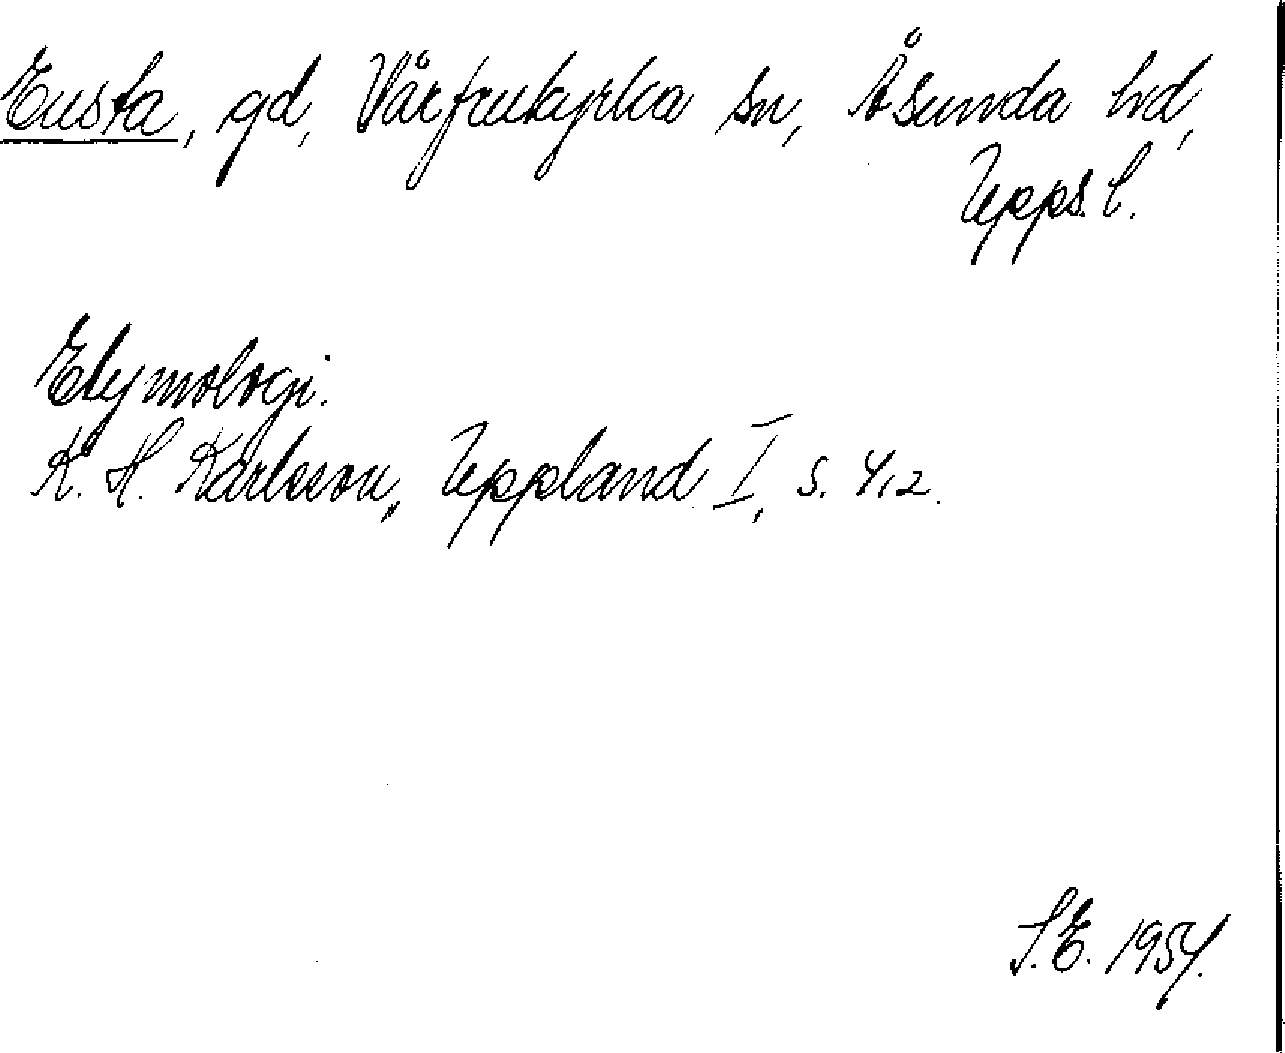 Eusta, gd, Vårfrukyrka sn, Åsunda hd,
Upps. l.
Etymologi.
K. H. Karlsson, Uppland I, s. 412.
S.E. 1954.